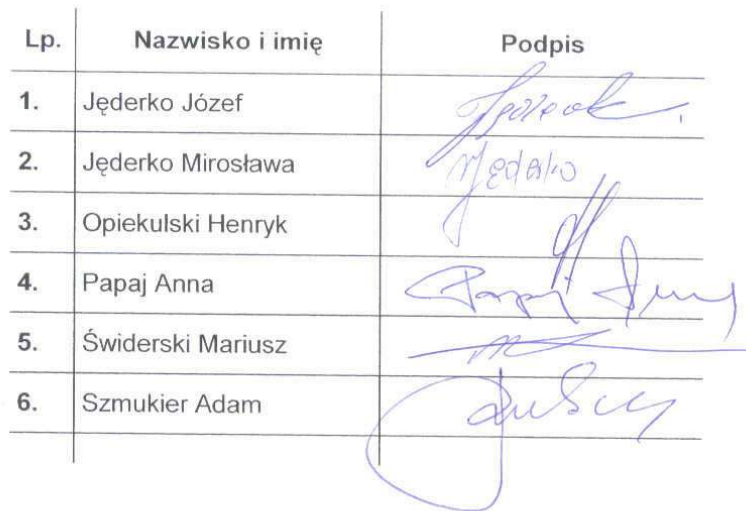 Lp. Nazwisko i imię Podpis
1. Jęderko Józef
2. Jęderko Mirosława Jęderko
3. Opiekulski Henryk
4. Papaj Anna Papaj Anna
5. Świderski Mariusz
6. Szmukier Adam